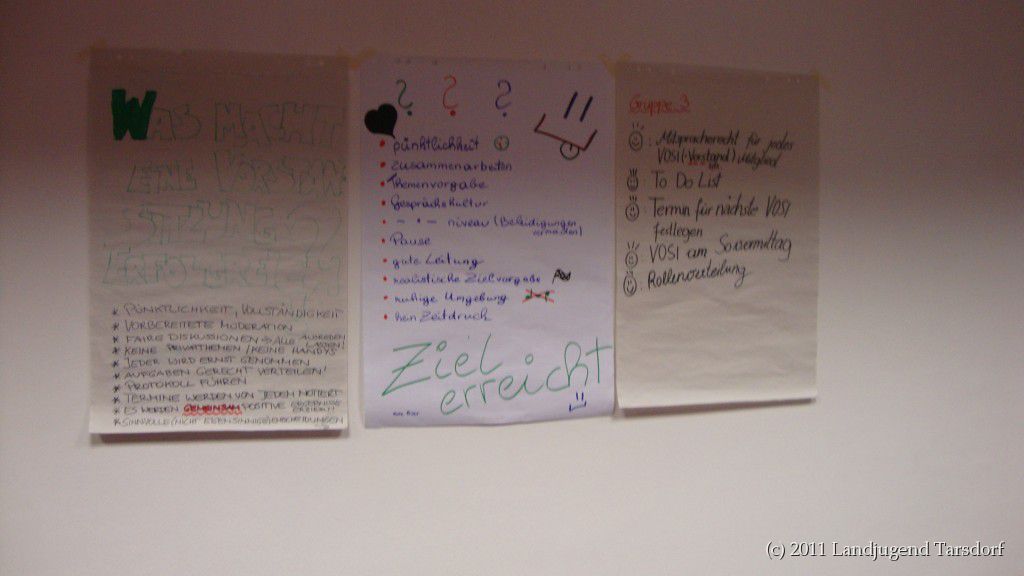 WAS MACHT
EINE VORSTAND
SITZUNG SO
ERFOLGREICH?
* PÜNKTLICHKEIT, VOLLSTÄNDIGKEIT
* VORBEREITETE MODERATION
* FAIRE DISKUSSIONEN → ALLE AUSREDEN
LASSEN!
* KEINE PRIVATTHEMEN / KEINE HANDYS
* JEDER WIRD ERNST GENOMMEN
* AUFGABEN GERECHT VERTEILEN!
* PROTOKOLL FÜHREN
* TERMINE WERDEN VON JEDEM NOTIERT
* ES WERDEN GEMEINSAM POSITIVE ERGEBNISSE
ERZIELT!!
* SINNVOLLE (NICHT EIGENSINNIGE) ENTSCHEIDUNGEN
? ? ?
• pünktlichkeit
• zusammenarbeiten
• Themenvorgabe
• Gesprächskultur
• – " – niveau (Beleidigungen
vermeiden)
• Pause
• gute Leitung
• realistische Zielvorgabe
• ruhige Umgebung
• kein Zeitdruck
Ziel
erreicht
Gruppe 3
: Mitspracherecht für jedes
VOSI (=Vorstand) Mitglied
: To Do List
: Termin für nächste VOSI
festlegen
: VOSI am
: Rollenverteilung
(c) 2011 Landjugend Tarsdorf